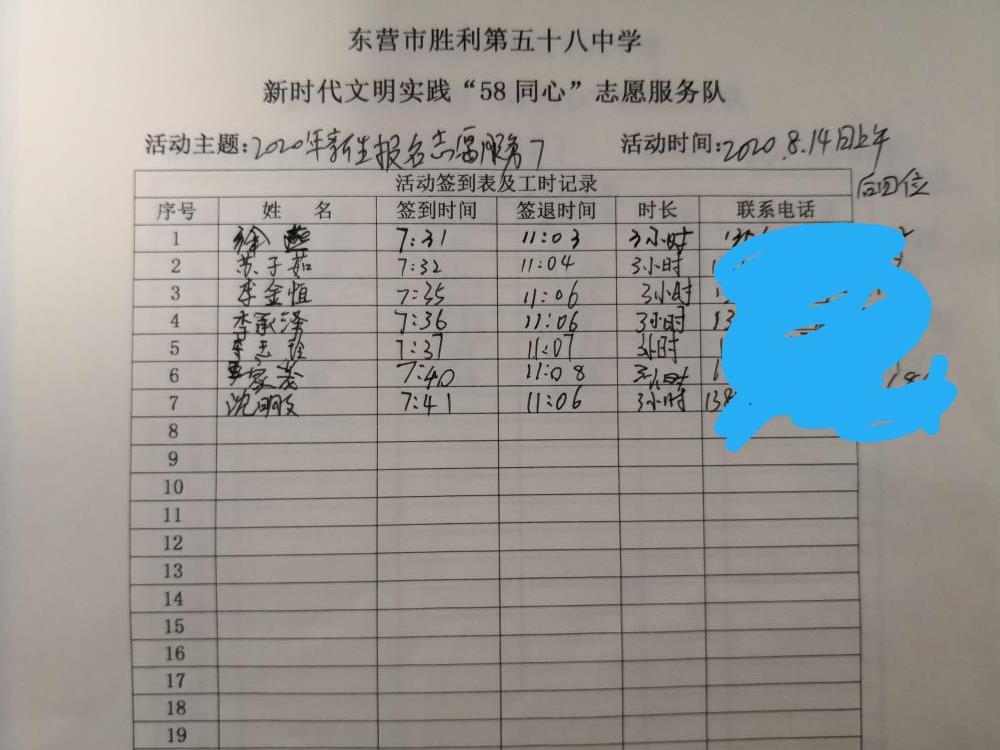 东营市胜利第五十八中学
新时代文明实践“58同心”志愿服务队
活动主题:2020年新生报名志愿服务7 活动时间:2020.8.14日上午
活动签到表及工时记录
序号 姓 名 签到时间 签退时间 时长 联系电话
1 徐 7:31 11:03 3小时
2 苏子茹 7:32 11:04 3小时
3 李金恒 7:35 11:06 3小时
4 李承泽 7:36 11:06 3小时 13
5 李志 7:37 11:07 3小时
6 家 7:40 11:08 3小时
7 沈明 7:41 11:06 3小时 138
8
9
10
11
12
13
14
15
16
17
18
19